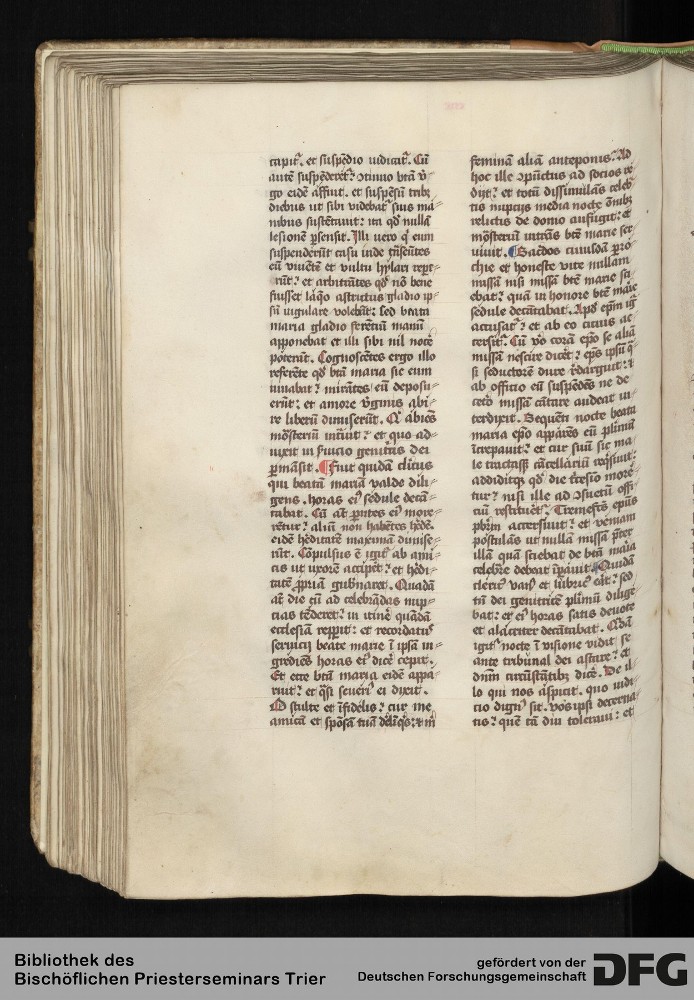 capit᷑. et suspēdio iudicat᷑. Cū
autē suspēderet᷑: ꝯtinuo btā v̄-
go eidē affuit. et suspēsū trib;
diebus ut sibi videbat᷑ suis ma-
nibus sustētauit: ita qd̄ nullā
lesionē ꝑsensit. Illi uero q̇ eum
suspenderūt casu inde trāseūtes
eū viuētē et vultu hylari reper-
rūt: et arbitrātes qd̄ nō bene
fuisset laq̇o astrictus gladio ip-
sū iugulare volebāt: sed beata
maria gladio ferētiū manū
apponebat et illi sibi nil nocē
poterāt. Cognoscētes ergo illo
referēte qd̄ btā maria sic eum
iuuabat: mirātes eū deposu-
erūt: et amore v̄ginis abi-
re liberū dimiserūt. Q̇ abiēs
mōsteriū ītrauit: et quo ad-
uixit in s̄uicio genitricis dei
ꝑmāsit. ¶ Fuit quidā cl̄icus
qui beatā mariā valde dili-
gens. horas ei᷒ sedule decā-
tabat. Cū aūt ꝑentes ei᷒ more-
rētur: aliū non habētes hēdē.
eidē hēditatē maximā dimise-
rūt. Cōpulsus ē igit᷑ ab ami-
cis ut uxorē acciꝑet: et hēdi-
tatē ꝓpriā gub̄naret. Quadā
aūt die cū ad celebrādas nup-
cias tēderet: in itinē quādā
ecclesiā repperit: et recordatus
seruicij beate marie ī ipsa in-
grediēs horas ei᷒ dicē cepit.
Et ecce btā maria eidē appa-
ruit: et q̇si seueri᷒ ei dixit.
O stulte et īfidelis: cur me
amicā et spōsā tuā delīq̇s: et m̄
feminā aliā anteponis: Ad
hoc ille ꝯpūctus ad socios re-
dijt: et totū dissimulās celeb-
tis nupcijs media nocte om̄ib;
relictis de domo aufugit: et
mōsteriū intrās btē marie ser-
uiuit. ¶ Sac̄dos cuiusdā ꝑro-
chie et honeste vite nullam
missā nisi missā btē marie sci-
ebat: quā in honore btē marie
sedule decātabat. Apd̄ epm̄ igr̄
accusat᷑: et ab eo citius ac-
cersit᷑. Cū v̄o corā ep̄o se aliā
missā nescire dicēt: ep̄s ipsū q̇-
si seductorē dure redarguit: et
ab officio eū suspēdēs ne de
cet̄o missā cātare audeat in-
terdixit. Sequēti nocte beata
maria ep̄o apparēs eū plimū
increpauit: et cur suū sic ma-
le tractasset cācellariū req̇siuit:
addiditq; qd̄ die tricesīo more-
tur: nisi ille ad ꝯsuetū offi-
ciū restitueret᷑. Tremefact᷒ ep̄us
pb̄rm accersiuit: et veniam
postulās ut nullā missā p̄ter
illā quā sciebat de btā maria
celebrē debeat īꝑauit. ¶ Quidā
cleric᷒ van᷒ et lubric᷒ erat: sed
tn̄ dei genitricē plimū dilige-
bat: et ei᷒ horas satis deuote
et alacriter decātabat. Q̇dā
igit᷑ nocte ī visione vidit se
ante tribunal dei astare: et
dnm̄ circūstātib; dicē. De il-
lo qui nos aspicit. quo iudi-
cio dign᷒ sit. vos ipsi decerna-
tis: quē tā diu toleraui: et
Bibliothek des
Bischöflichen Priesterseminars Trier
gefördert von der
Deutschen Forschungsgemeinschaft
DFG